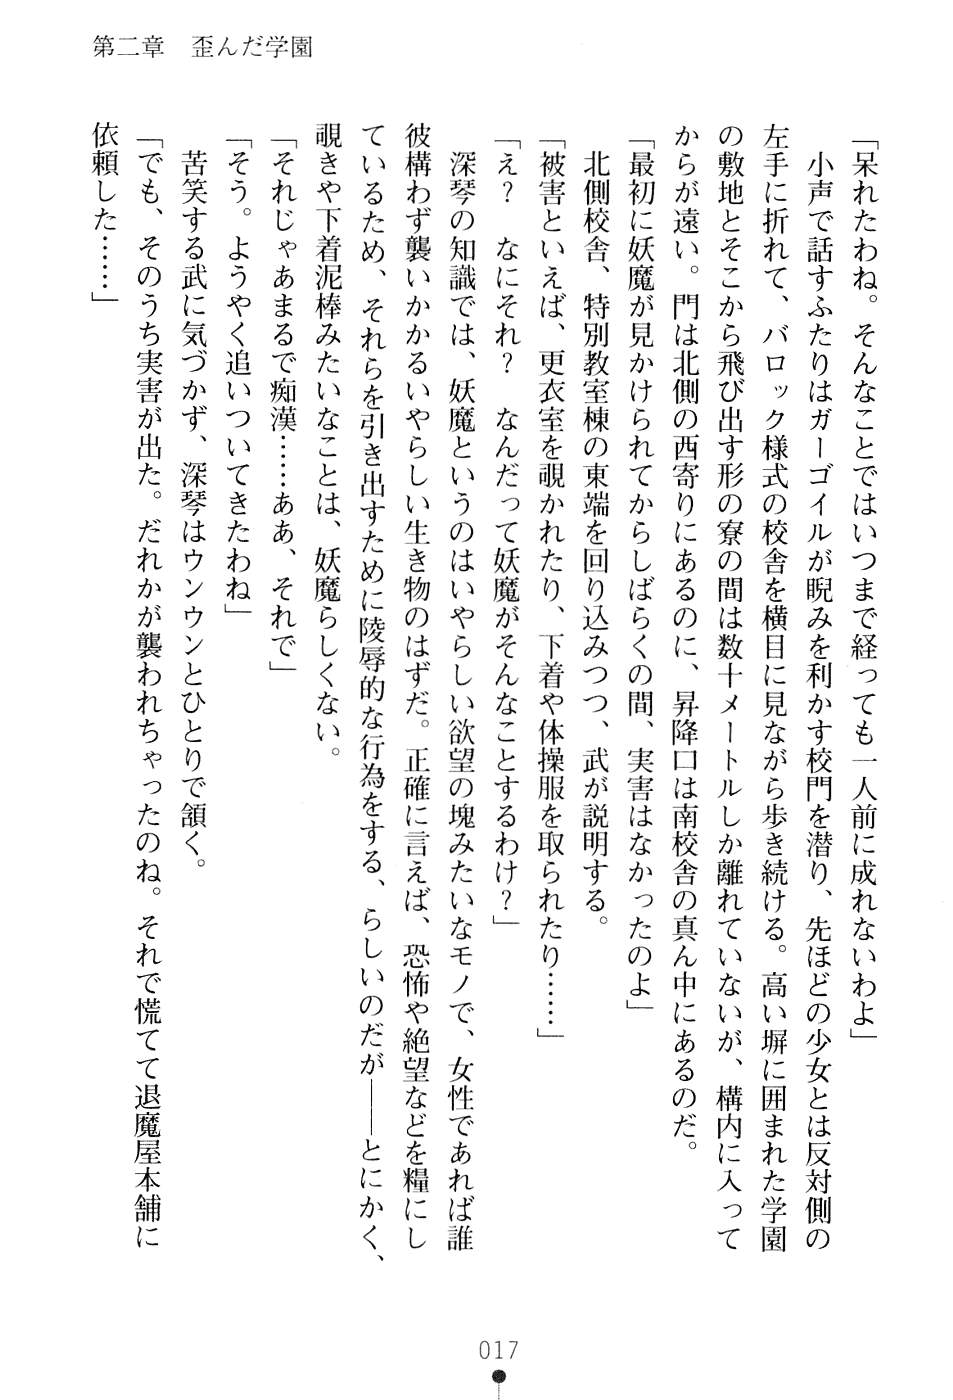 第二章　歪んだ学園
「呆れたわね。そんなことではいつまで経っても一人前に成れないわよ」
　小声で話すふたりはガーゴイルが睨みを利かす校門を潜り、先ほどの少女とは反対側の
左手に折れて、バロック様式の校舎を横目に見ながら歩き続ける。高い塀に囲まれた学園
の敷地とそこから飛び出す形の寮の間は数十メートルしか離れていないが、構内に入って
からが遠い。門は北側の西寄りにあるのに、昇降口は南校舎の真ん中にあるのだ。
「最初に妖魔が見かけられてからしばらくの間、実害はなかったのよ」
　北側校舎、特別教室棟の東端を回り込みつつ、武が説明する。
「被害といえば、更衣室を覗かれたり、下着や体操服を取られたり……」
「え？　なにそれ？　なんだって妖魔がそんなことするわけ？」
　深琴の知識では、妖魔というのはいやらしい欲望の塊みたいなモノで、女性であれば誰
彼構わず襲いかかるいやらしい生き物のはずだ。正確に言えば、恐怖や絶望などを糧にし
ているため、それらを引き出すために陵辱的な行為をする、らしいのだが――とにかく、
覗きや下着泥棒みたいなことは、妖魔らしくない。
「それじゃあまるで痴漢……ああ、それで」
「そう。ようやく追いついてきたわね」
　苦笑する武に気づかず、深琴はウンウンとひとりで頷く。
「でも、そのうち実害が出た。だれかが襲われちゃったのね。それで慌てて退魔屋本舗に
依頼した……」
017